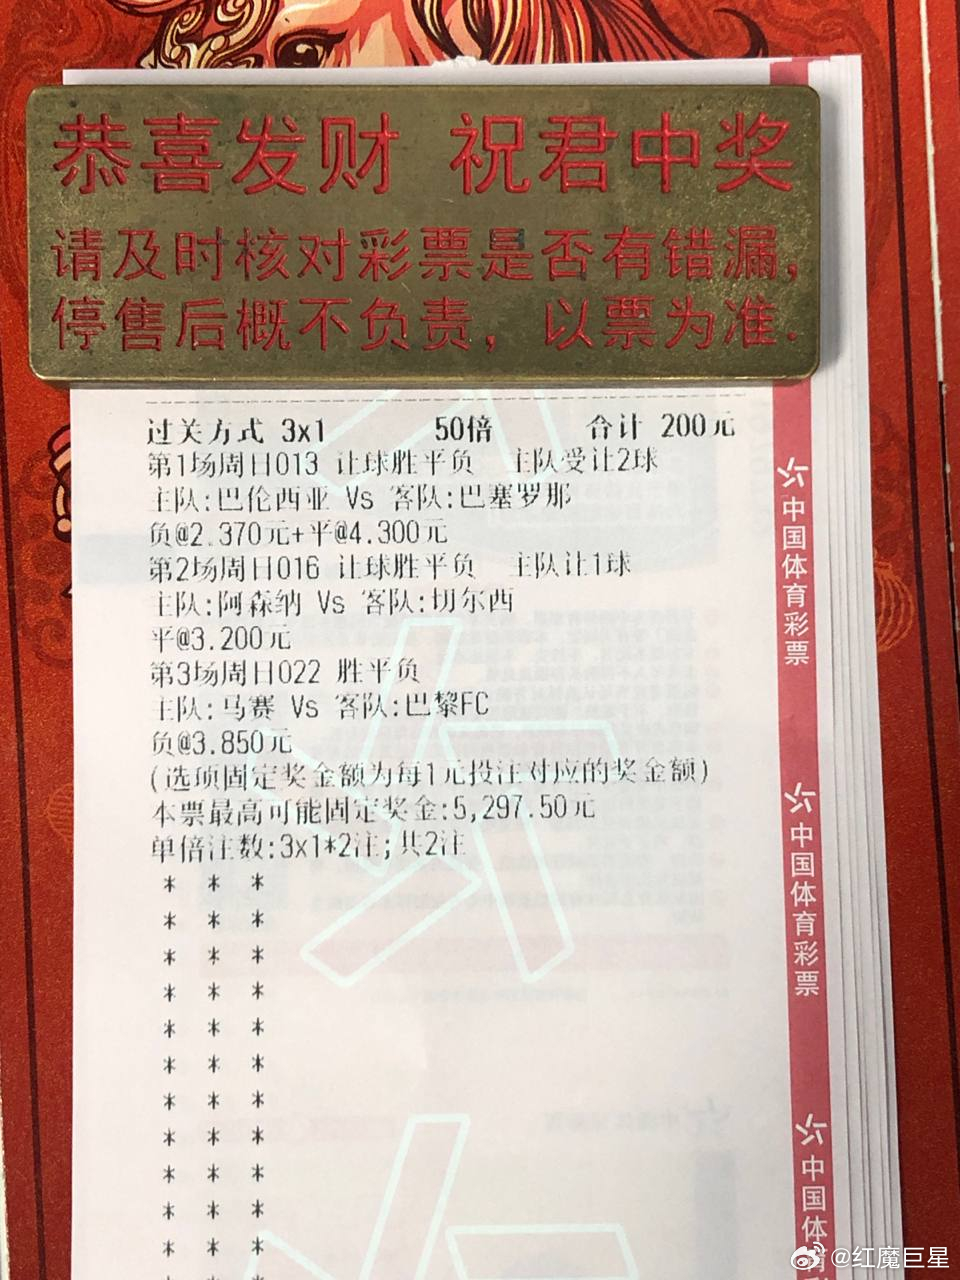 恭喜发财 祝君中奖
请及时核对彩票是否有错漏,
停售后概不负责，以票为准.
过关方式 3x1 50倍 合计 200元
第1场周日013 让球胜平负 主队受让2球
主队:巴伦西亚 Vs 客队:巴塞罗那
负@2.370元+平@4.300元
第2场周日016 让球胜平负 主队让1球
主队:阿森纳 Vs 客队:切尔西
平@3.200元
第3场周日022 胜平负
主队:马赛 Vs 客队:巴黎FC
负@3.850元
(选项固定奖金额为每1元投注对应的奖金额)
本票最高可能固定奖金:5,297.50元
单倍注数:3x1*2注;共2注
* * *
* * *
* * *
* * *
* * *
* * *
* * *
* * *
* * *
* * *
* * *
中国体育彩票
中国体育彩票
中国体育
@红魔巨星